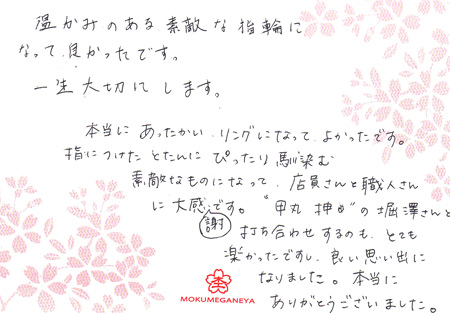 温かみのある素敵な指輪に
なって良かったです。
一生大切にします。
本当にあったかいリングになって、よかったです。
指につけたとたんにぴったり馴染む
素敵なものになって、店員さんと職人さん
に大感謝です。"甲丸 押め"の堀澤さんと
打ち合わせするのも、とても
楽かったですし、良い思い出に
なりました。本当に
ありがとうございました。
MOKUMEGANEYA